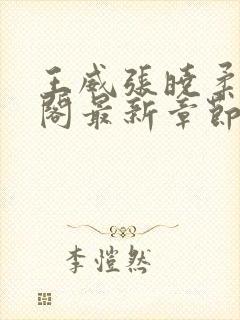 王威張曉柔
閣最新章節
李愷然